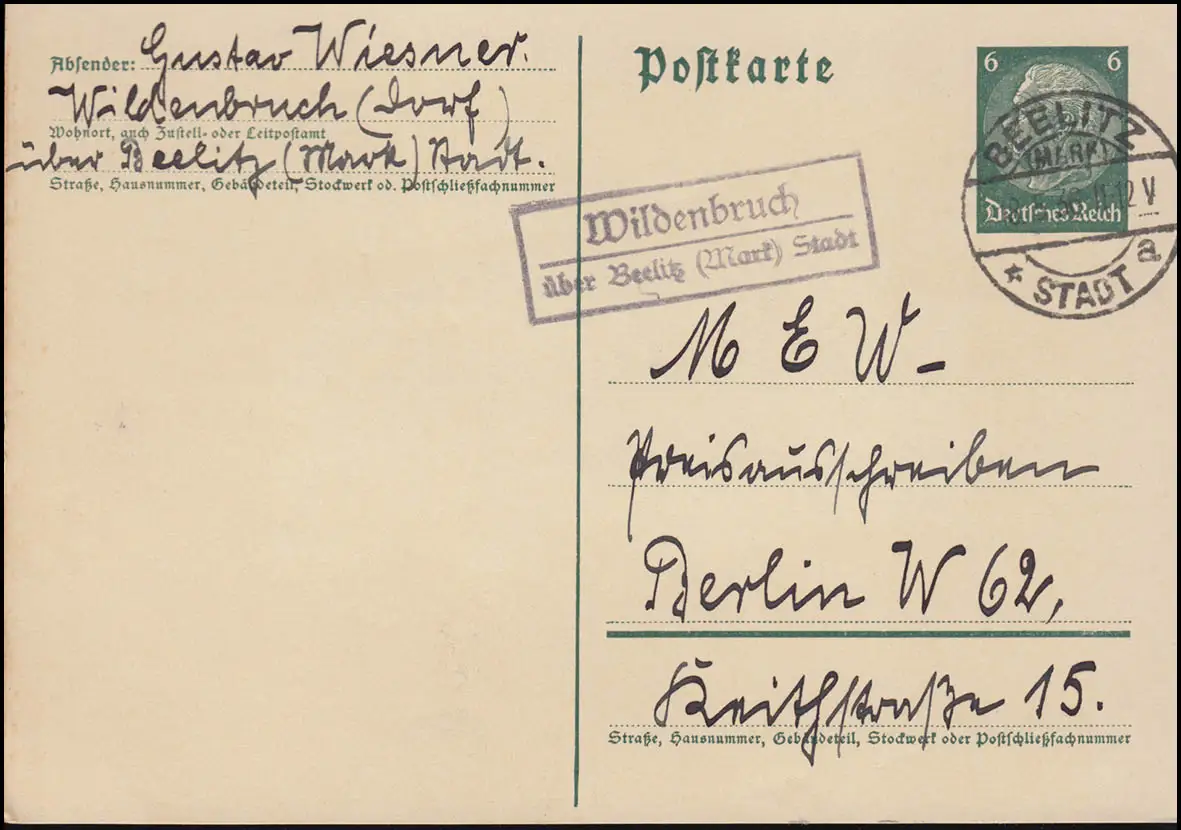 Absender: Gustav Wiesner.
Wildenbruch (Dorf)
Wohnort, auch Zustell- oder Leitpostamt
über Beelitz (Mark) Stadt.
Straße, Hausnummer, Gebäudeteil, Stockwerk od. Postschließfachnummer
Postkarte
6 6
Deutsches Reich
BEELITZ
(MARK)
12 V
* STADT a
Wildenbruch
über Beelitz (Mark) Stadt
M E W-
Preisausschreiben
Berlin W 62,
Keithstraße 15.
Straße, Hausnummer, Gebäudeteil, Stockwerk oder Postschließfachnummer